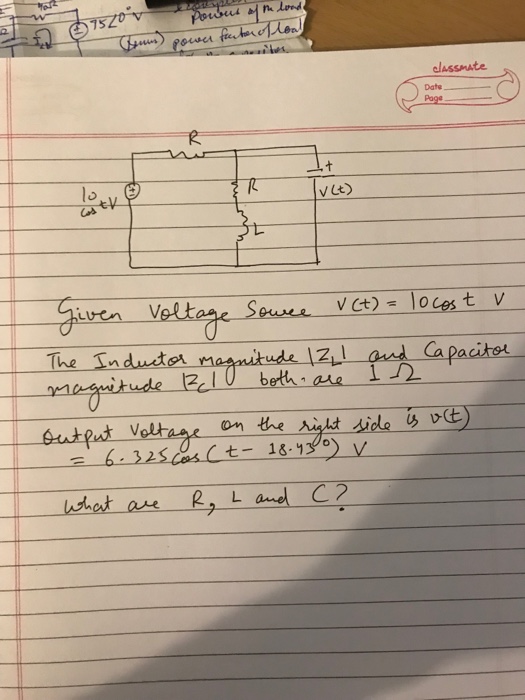 75∠0° V
Power of the load
power factor of load
classmate
Date
Page
R
10
cos t V
R
L
+
V(t)
Given Voltage Source V(t) = 10 cos t V
The Inductor magnitude |ZL| and Capacitor
magnitude |Zc| both are 1 Ω
Output Voltage on the right side is v(t)
= 6.325 cos (t - 18.43°) V
What are R, L and C?